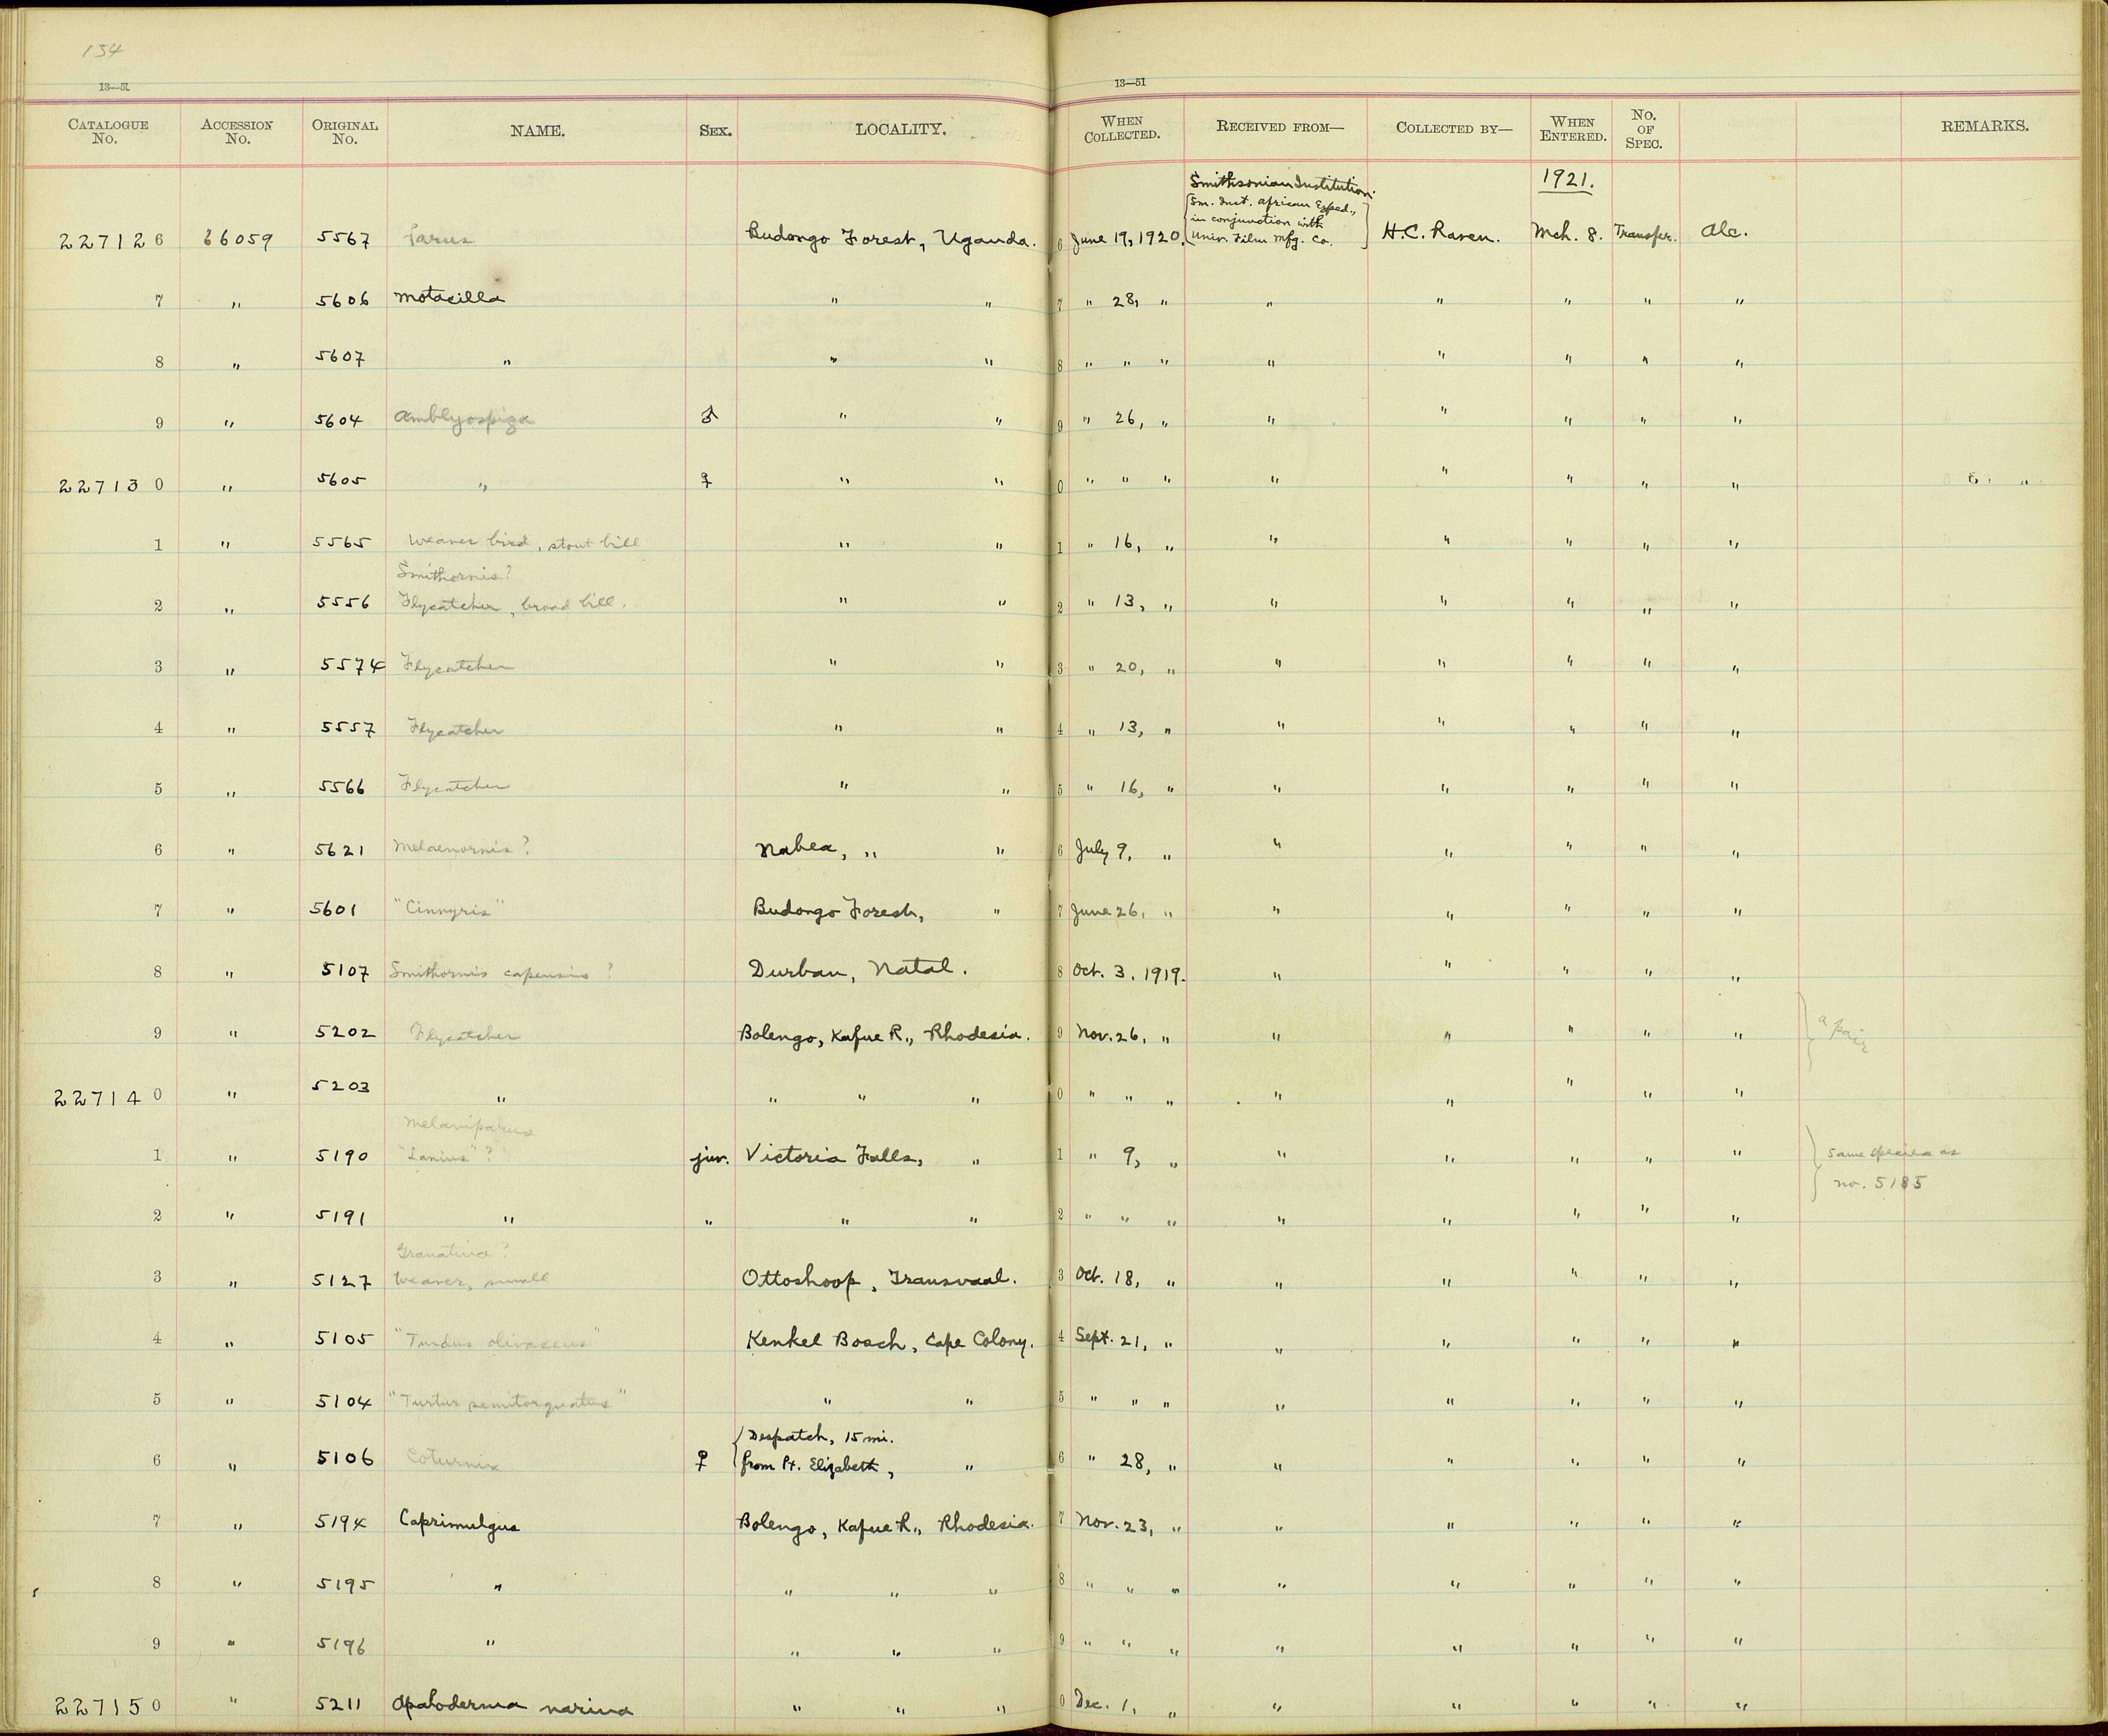 134
13—51
13—51
CATALOGUE No. ACCESSION No. ORIGINAL No. NAME. SEX. LOCALITY. WHEN COLLECTED. RECEIVED FROM— COLLECTED BY— WHEN ENTERED. No. OF SPEC. REMARKS.
Smithsonian Institution. 1921.
Sm. Inst. African Exped.,
in conjunction with
227126 66059 5567 Parus Budongo Forest, Uganda. 6 June 19, 1920. Univ. Film Mfg. Co. H.C. Raven. Mch. 8. Transfer. Alc.
7 " 5606 Motacilla " " 7 " 28, " " " " " "
8 " 5607 " " " 8 " " " " " " " "
9 " 5604 Amblyospiza ♂ " " 9 " 26, " " " " " "
227130 " 5605 " ♀ " " 0 " " " " " " " "
1 " 5565 Weaver bird, stout bill " " 1 " 16, " " " " " "
Smithornis?
2 " 5556 Flycatcher, broad bill. " " 2 " 13, " " " " " "
3 " 5574 Flycatcher " " 3 " 20, " " " " " "
4 " 5557 Flycatcher " " 4 " 13, " " " " " "
5 " 5566 Flycatcher " " 5 " 16, " " " " " "
6 " 5621 Melaenornis? Nabea, " " 6 July 9, " " " " " "
7 " 5601 "Cinnyris" Budongo Forest, " 7 June 26, " " " " " "
8 " 5107 Smithornis capensis ? Durban, Natal. 8 Oct. 3, 1919. " " " " "
9 " 5202 Flycatcher Bolengo, Kafue R., Rhodesia. 9 Nov. 26, " " " " " " a pair
227140 " 5203 " " " " 0 " " " " " " " "
Melaniparus
1 " 5190 "Lanius"? juv. Victoria Falls, " 1 " 9, " " " " " " same species as
no. 5185
2 " 5191 " " " " 2 " " " " " " " "
Granatina?
3 " 5127 Weaver, small Ottoshoop, Transvaal. 3 Oct. 18, " " " " " "
4 " 5105 "Turdus olivaceus" Kenkel Bosch, Cape Colony. 4 Sept. 21, " " " " " "
5 " 5104 "Turtur semitorquatus" " " 5 " " " " " " " "
Despatch, 15 mi.
6 " 5106 Coturnix ♀ from Pt. Elizabeth, " 6 " 28, " " " " " "
7 " 5194 Caprimulgus Bolengo, Kafue R., Rhodesia. 7 Nov. 23, " " " " " "
8 " 5195 " " " " 8 " " " " " " " "
9 " 5196 " " " " 9 " " " " " " " "
227150 " 5211 Apaloderma narina " " " 0 Dec. 1, " " " " " "